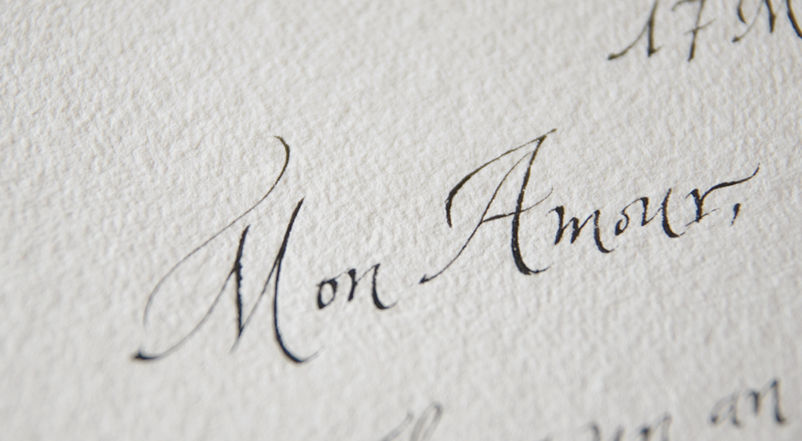 17 M
Mon Amour,
un an